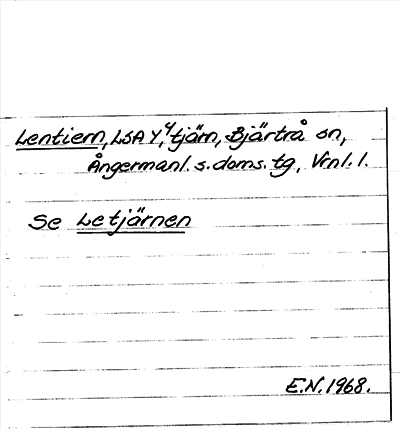 Lentiern, LSA Y⁴, tjärn, Bjärtrå sn,
Ångermanl. s. doms. tg, Vrnl. l.
Se Letjärnen
E.N. 1968.